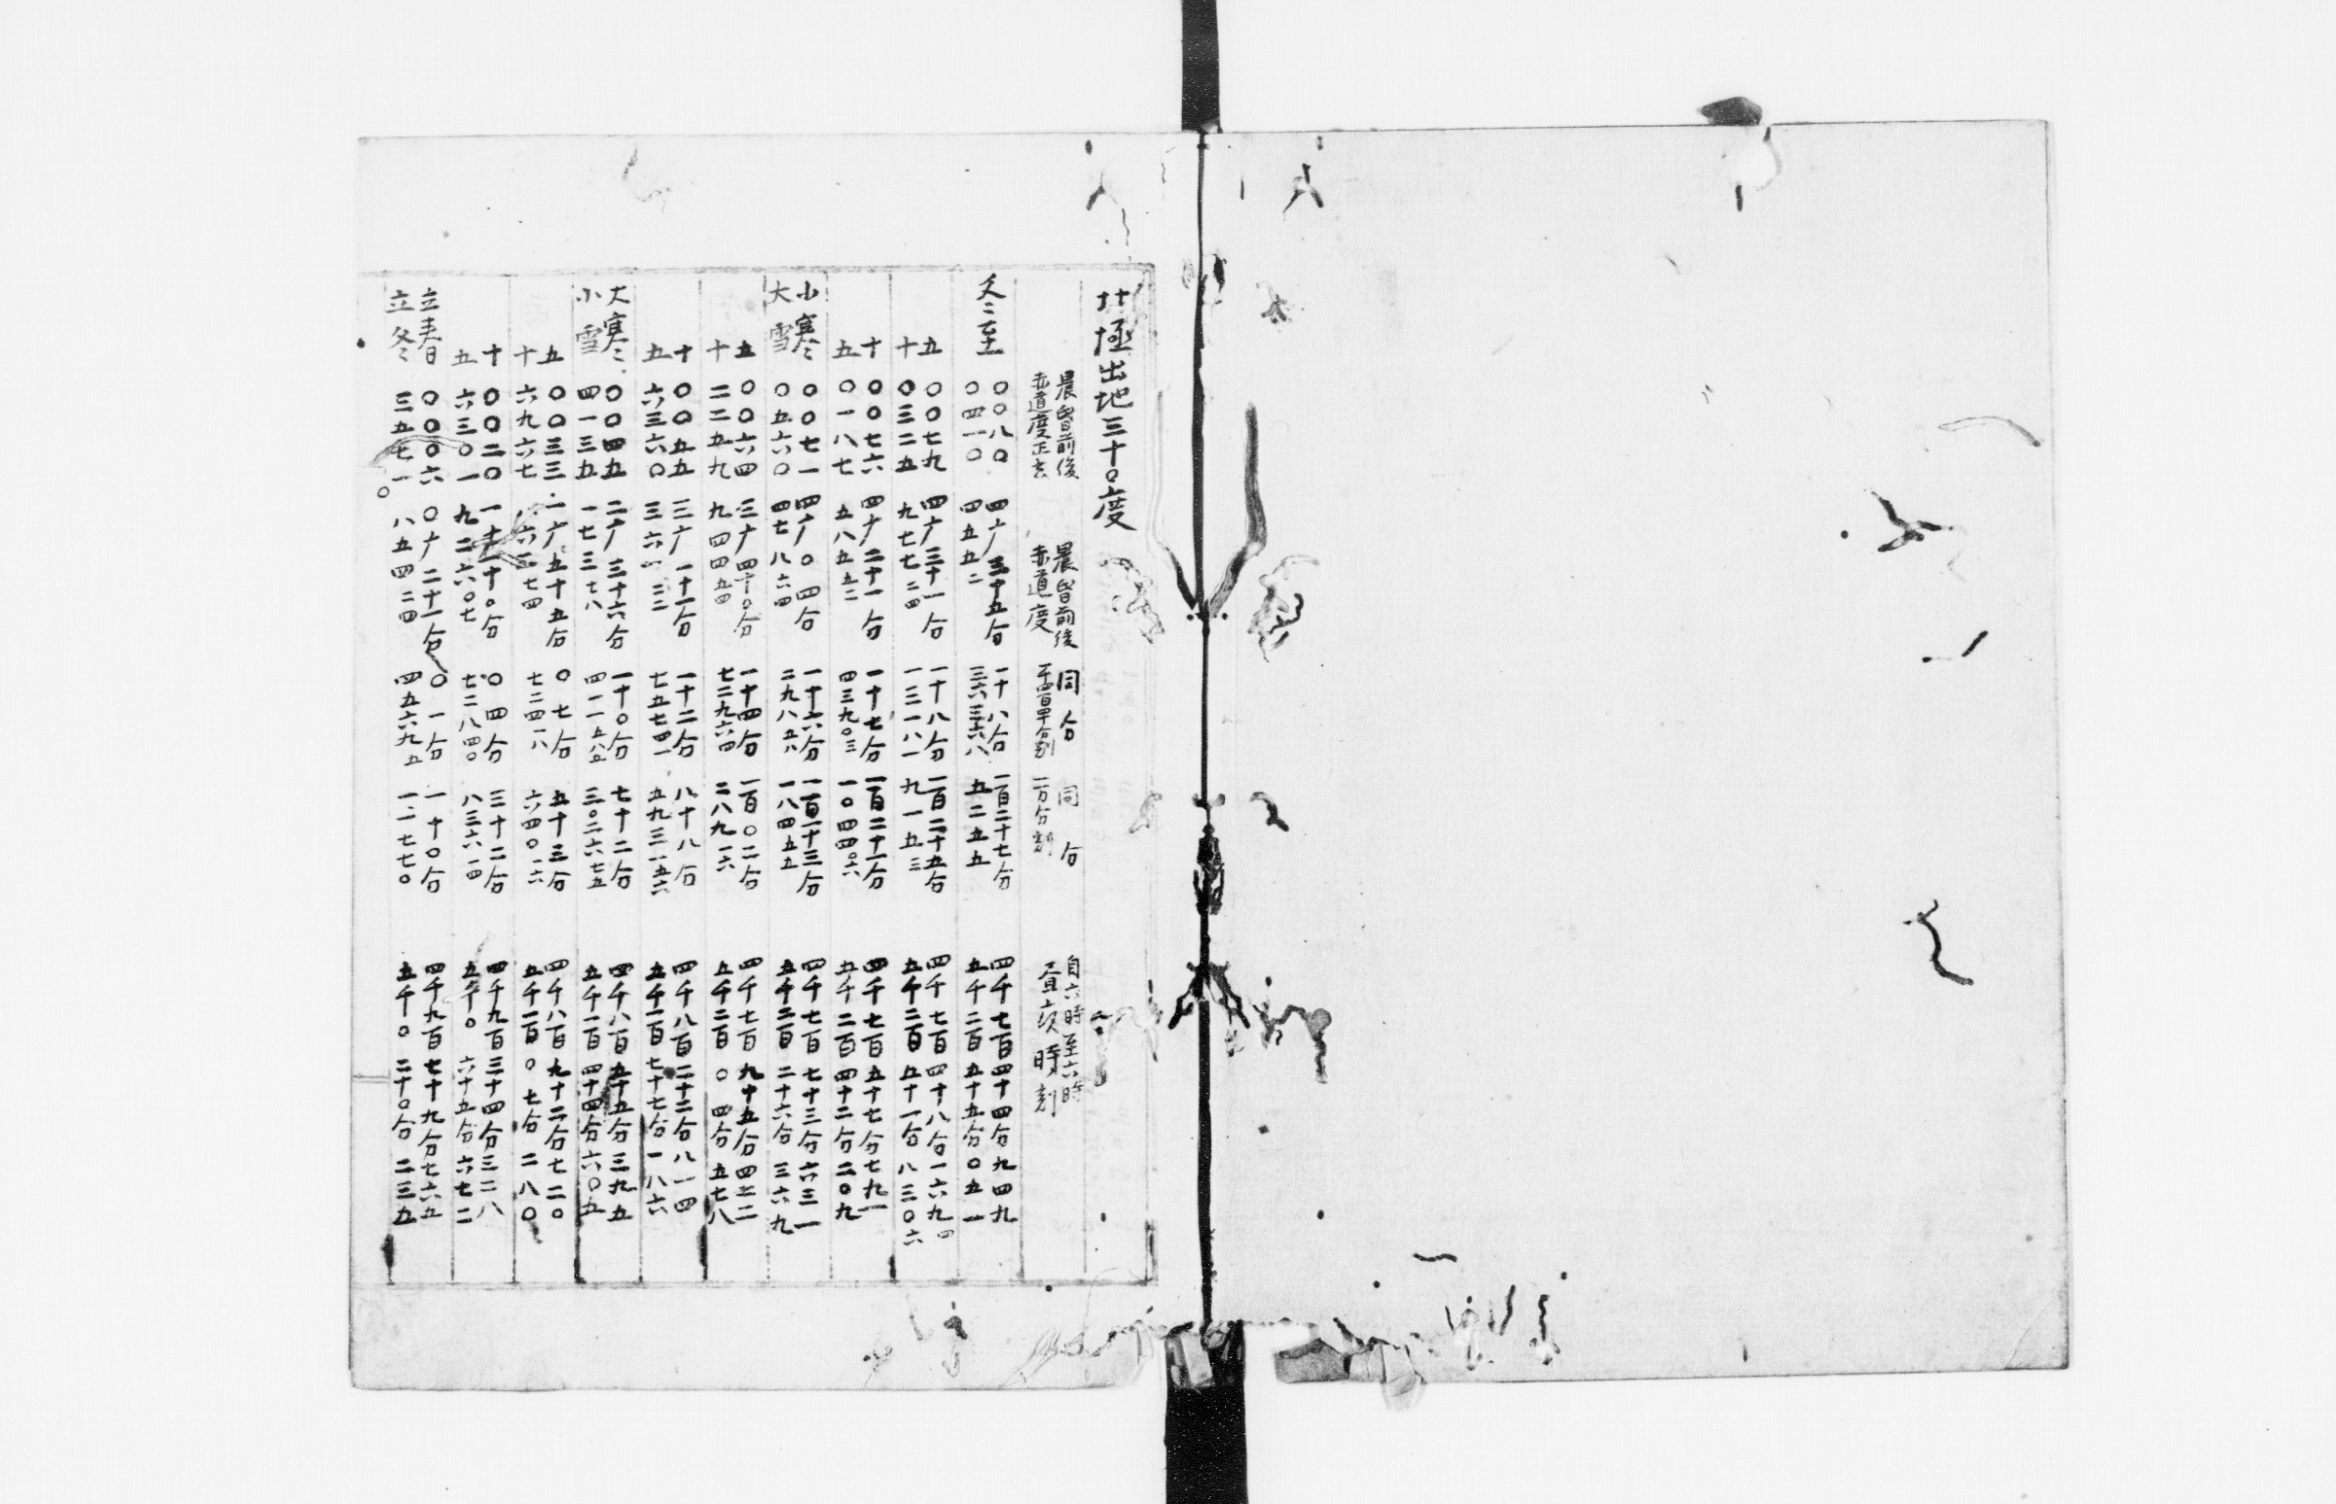 北極出地三十〇度
晨昏前後　晨昏前後　同分　同分　自六時至六時
赤道度正玄　赤道度　一千四百四十分刻　一万分刻　昼夜時刻
冬至
〇〇八〇　四广三十五分　一十八分　一百二十七分　四千七百四十四分九四九
〇四一〇　四五五二　三六三六八　五二五五　五千二百五十五分〇五一
五　〇〇七九　四广三十一分　一十八分　一百二十五分　四千七百四十八分一六九四
十　〇三二五　九七七二四　一三一八一　九一五三　五千二百五十一分八三〇六
十　〇〇七六　四广二十一分　一十七分　一百二十一分　四千七百五十七分七九一
五　〇一八七　五八五五二　四三九〇三　一〇四四〇六　五千二百四十二分二〇九
小寒　〇〇七一　四广〇四分　一十六分　一百一十三分　四千七百七十三分六三一
大雪　〇五六〇　四七八六四　二九八五八　一八四五五　五千二百二十六分三六九
五　〇〇六四　三广四十〇分　一十四分　一百〇二分　四千七百九十五分四二二
十　二二五九　九四四五四　七二九六四　二八九一六　五千二百〇四分五七八
十　〇〇五五　三广一十一分　一十二分　八十八分　四千八百二十二分八一四
五　六三六〇　三六一三三　七五七四一　五九三一五六　五千一百七十七分一八六
大寒　〇〇四五　二广三十六分　一十〇分　七十二分　四千八百五十五分三九五
小雪　四一三五　一七三七八　四一一五八五　三〇二六七五　五千一百四十四分六〇五
五　〇〇三三　一广五十五分　〇七分　五十三分　四千八百九十二分七二〇
十　六九六七　六二七四　七二四一八　六四〇一六　五千一百〇七分二八〇
十　〇〇二〇　一广一十〇分　〇四分　三十二分　四千九百三十四分三二八
五　六三〇一　九二六〇七　七二八四〇　八三六一四　五千〇六十五分六七二
立春　〇〇〇六　〇广二十一分　〇一分　一十〇分　四千九百七十九分七六五
立冬　三五七一〇　八五四二四　四五六九五　一一七七〇　五千〇二十〇分二三五